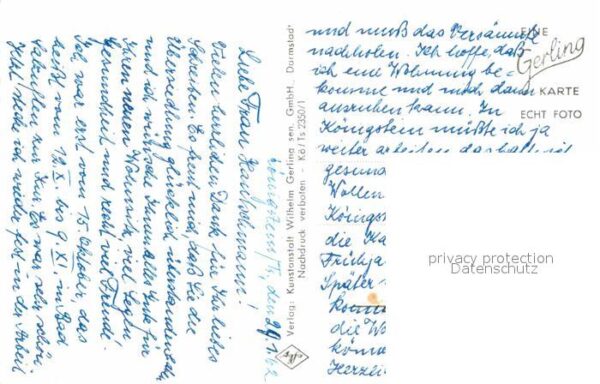 Königstein/T, den 29.1.62
Liebe Frau
Vielen herzlichen Dank für Ihr liebes
Schreiben. Es freut mich, daß Sie die
Übersiedlung glücklich überstanden haben
und ich wünsche Ihnen alles Gute für
Ihren neuen Wohnsitz, viel
Gesundheit und recht viel Freude.
Ich war erst vom 15. Oktober, das
heißt vom 12.X. bis 9.XI. in Bad
zur Kur. Es war sehr schön.
Jetzt stehe ich wieder fest in der Arbeit
und muß das Versäumte
nachholen. Ich hoffe, daß
ich eine Wohnung be-
komme und mich dann
ausruhen kann. In
Königstein müßte ich ja
weiter arbeiten deshalb
gesun
Wollen
Königs
die Ka
Frühja
Später
kom
die Wo
köme
Herzli
EINE
Gerling
KARTE
ECHT FOTO
Verlag: Kunstanstalt Wilhelm Gerling sen., GmbH., Darmstadt
Nachdruck verboten - Kö/Ts 2350/1
privacy protection
Datenschutz